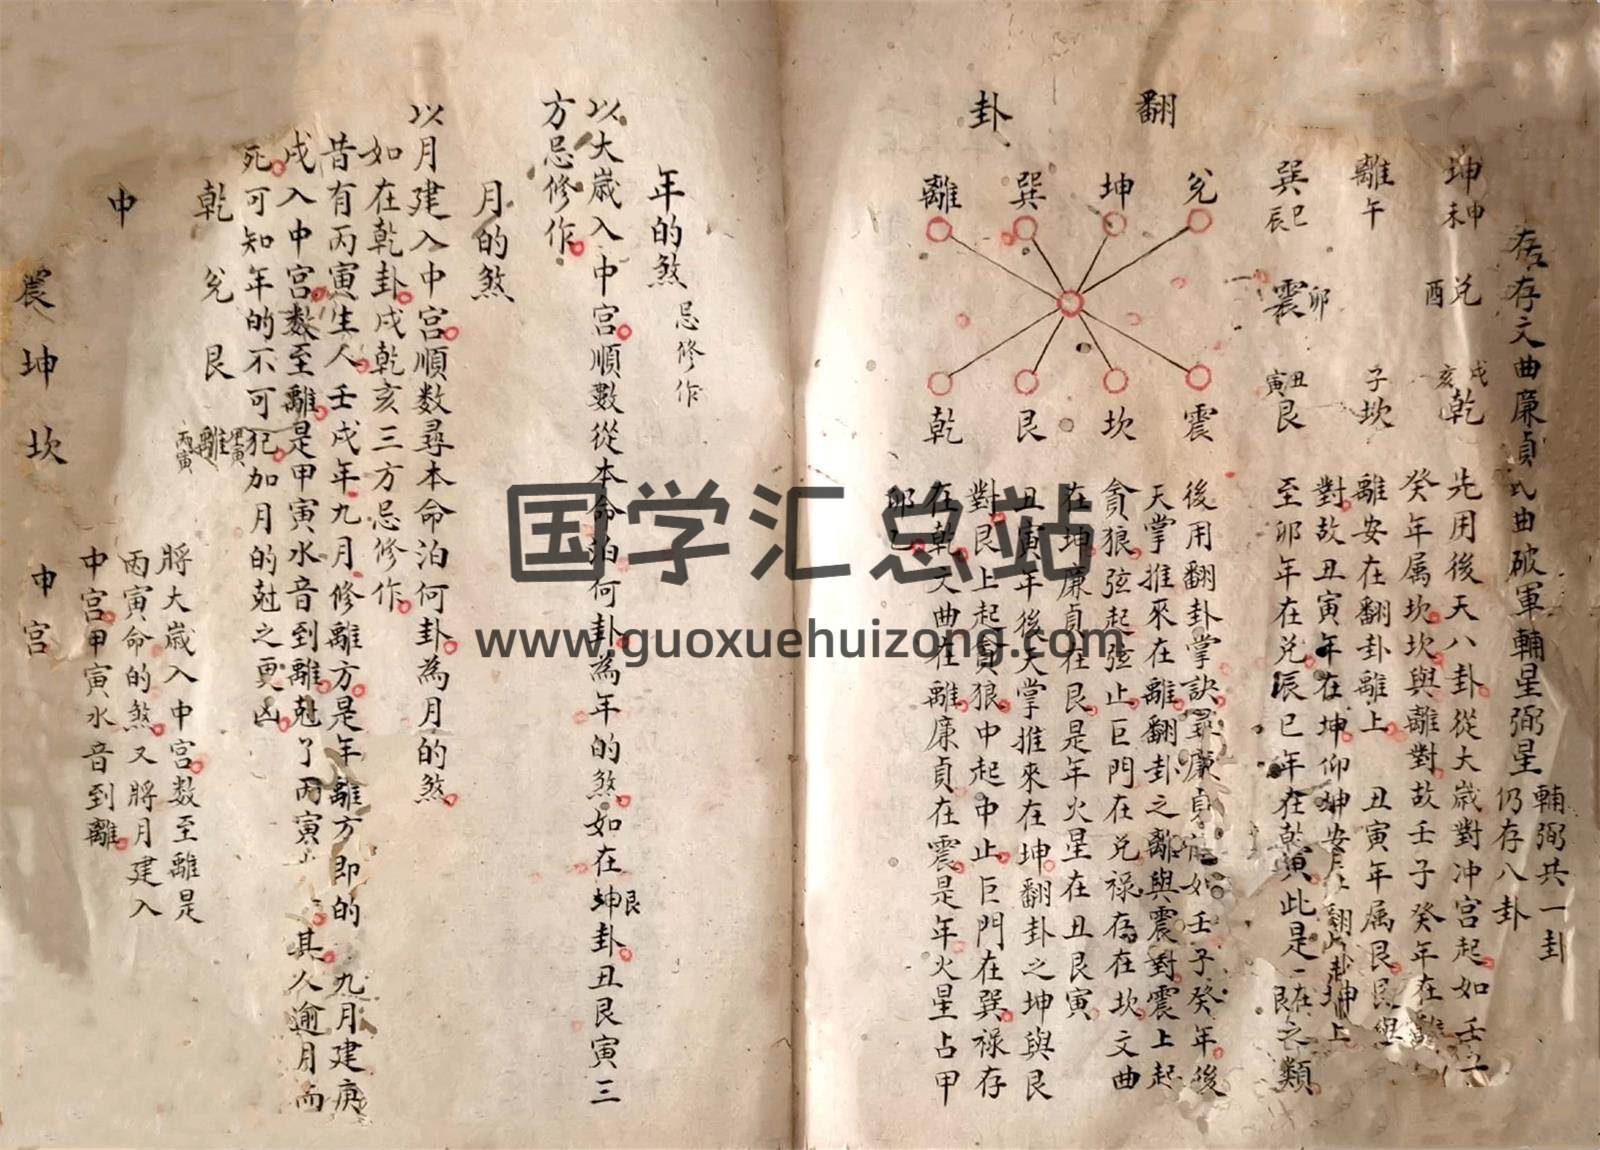 存文曲廉貞武曲破軍輔星弼星
輔弼共一卦
仍存八卦
坤申未 兑酉 乾戌亥
離午 子坎
巽巳辰 震卯 艮丑寅
先用後天八卦從大歲對冲宮起如壬子
癸年属坎坎與離對故壬子癸年在離
離安在翻卦離上 丑寅年属艮艮與
對故丑寅年在坤仰坤安
至卯年在兑辰巳年在乾此是
之類
翻卦
兑坤巽離
震坎艮乾
後用翻卦掌訣尋廉貞 如壬子癸年後
天掌推來在離翻卦之離與震對震上起
貪狼弦起弦止巨門在兑禄存在坎文曲
在坤廉貞在艮是年火星在丑艮寅
丑寅年後天掌推來在坤翻卦之坤與艮
對艮上起貪狼中起中止巨門在巽禄存
在乾文曲在離廉貞在震是年火星占甲
卯乙
年的煞 忌修作
以大歲入中宮順數從本命泊何卦為年的煞如在坤艮卦丑艮寅三
方忌修作
月的煞
以月建入中宮順数尋本命泊何卦為月的煞
如在乾卦戌乾亥三方忌修作
昔有丙寅生人壬戌年九月修離方是年離方即的 九月建庚
戌入中宮数至離是甲寅水音到離尅了丙寅 其人逾月而
死可知年的不可犯加月的尅之更凶
乾兑艮離甲寅丙寅
中
震坤坎
中宮
將大歲入中宮数至離是
丙寅命的煞又將月建入
中宮甲寅水音到離
国学汇总站
www.guoxuehuizong.com